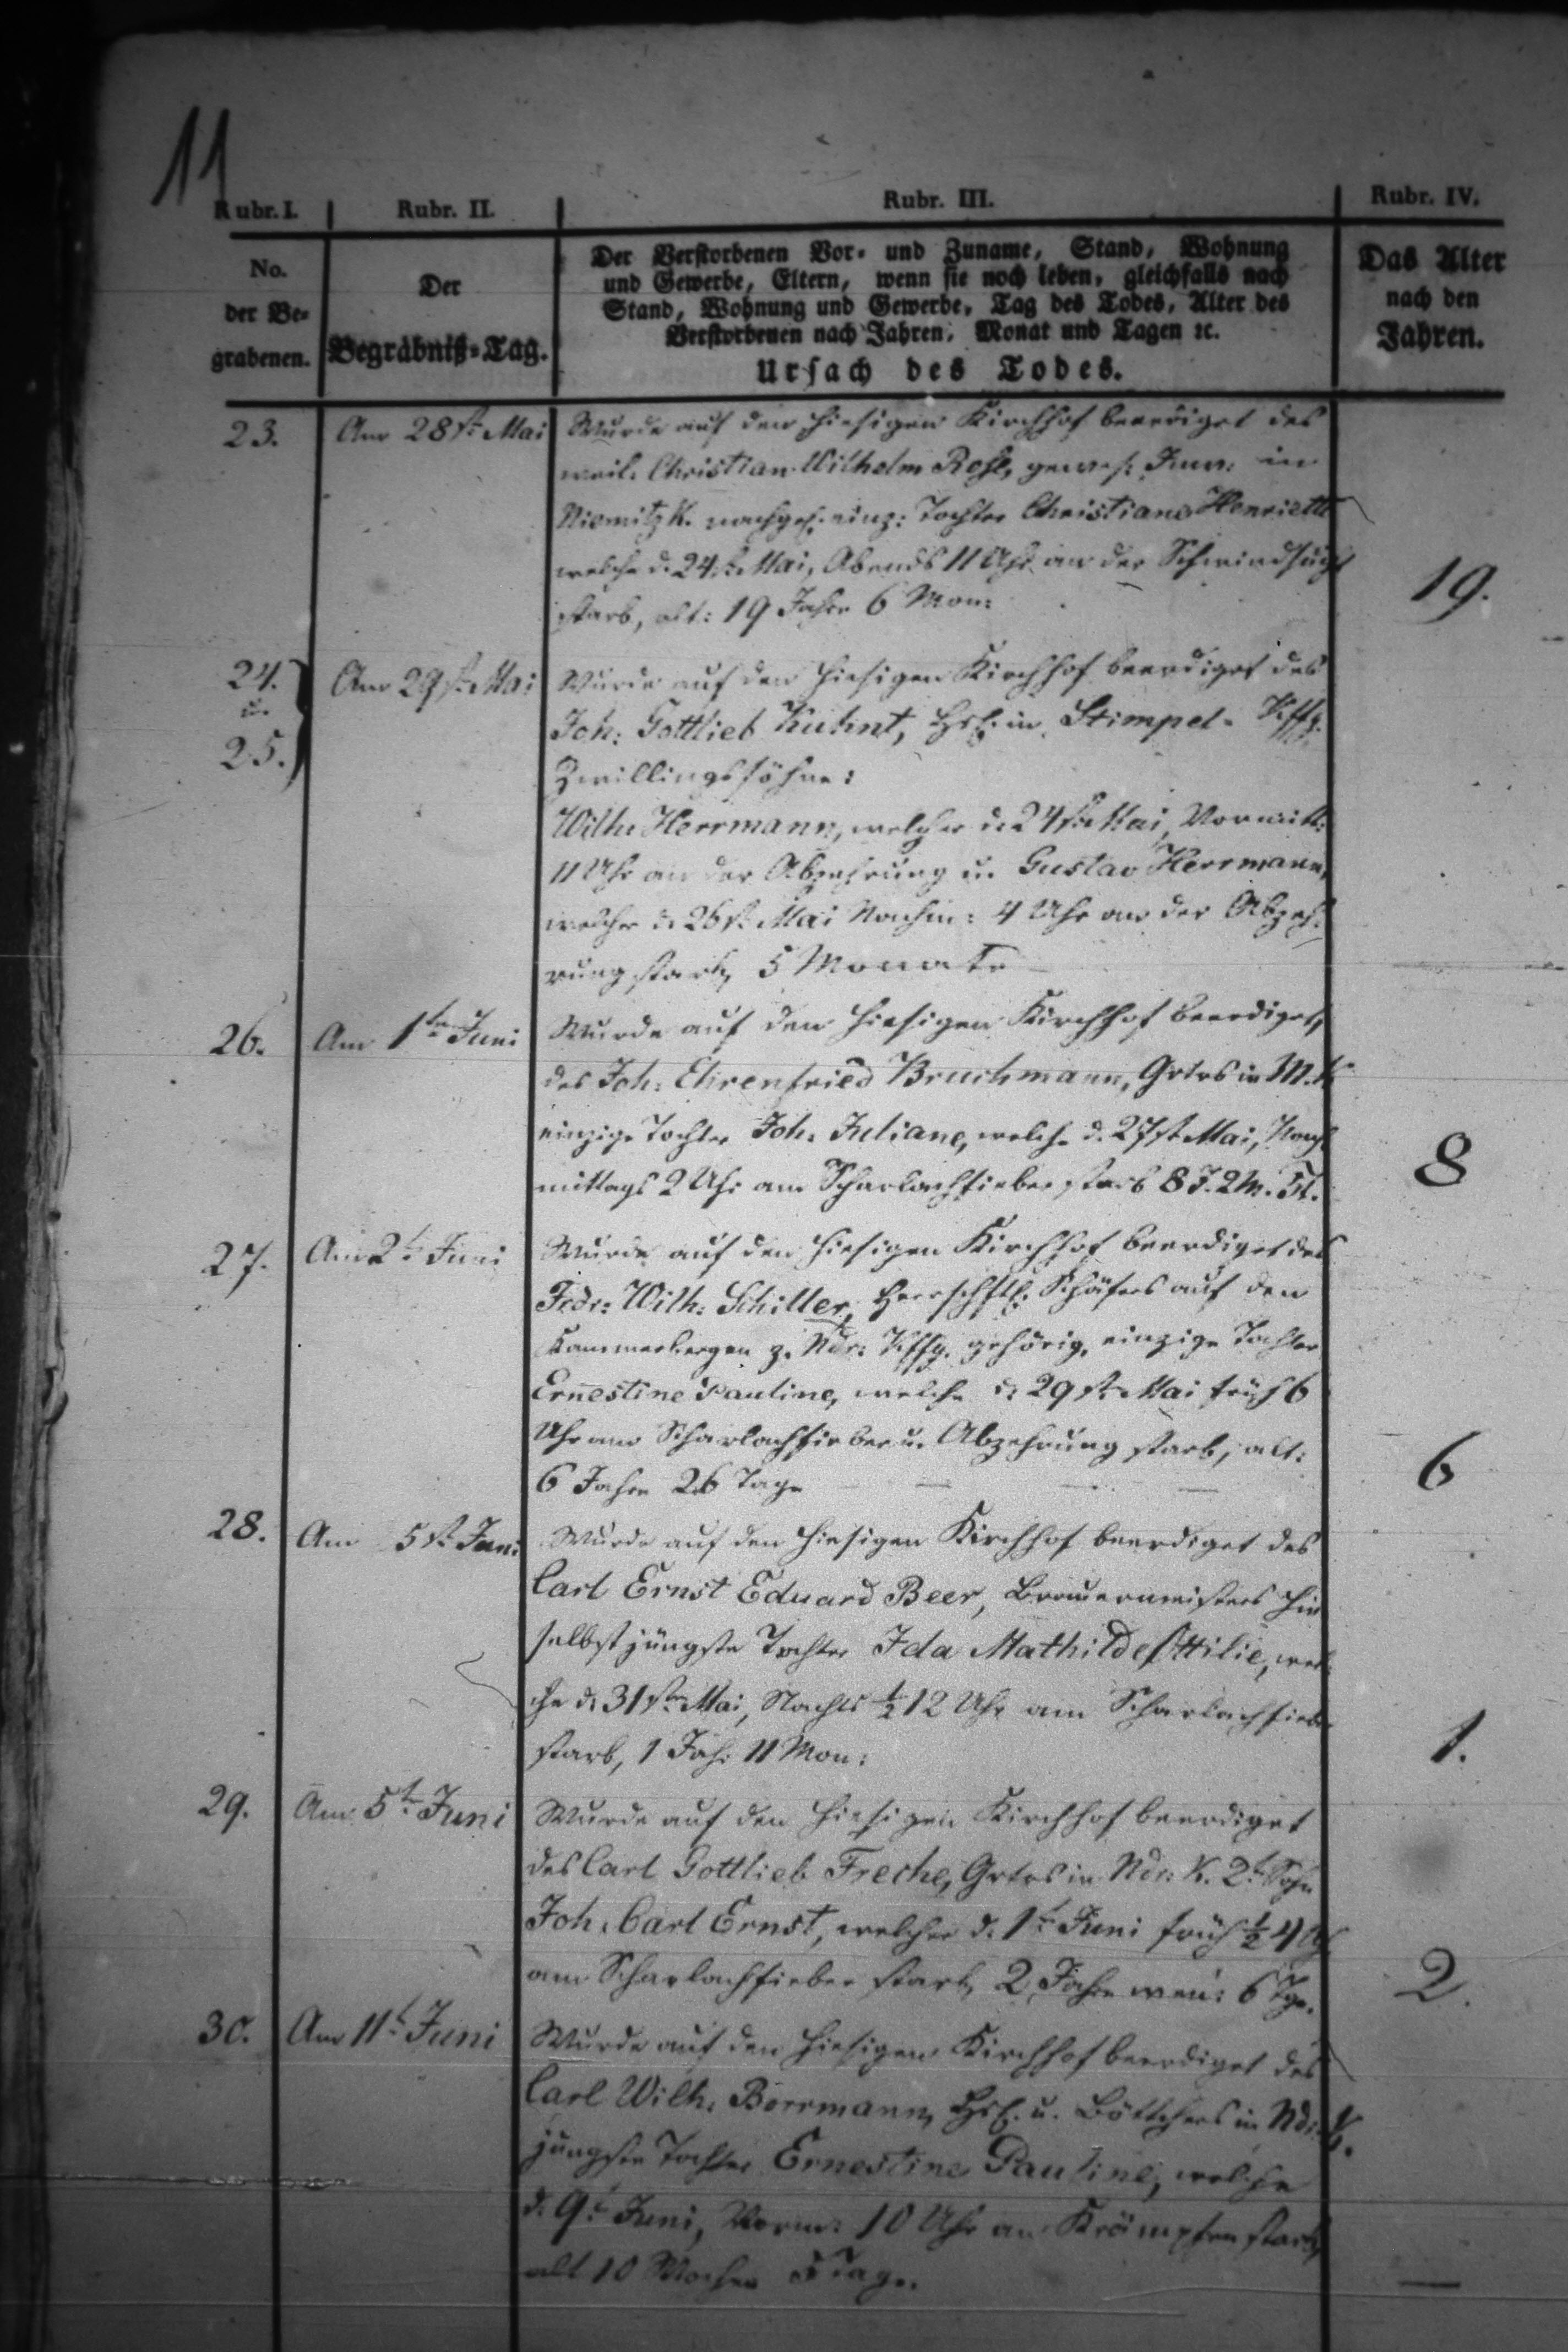 11
Rubr. I. Rubr. II. Rubr. III. Rubr. IV.
No. der Be-grabenen.
Der Begräbniß-Tag.
Der Verstorbenen Vor- und Zuname, Stand, Wohnung
und Gewerbe, Eltern, wenn sie noch leben, gleichfalls nach
Stand, Wohnung und Gewerbe, Tag des Todes, Alter des
Verstorbenen nach Jahren, Monat und Tagen ꝛc.
Ursach des Todes.
Das Alter
nach den
Jahren.
23. Am 28st. Mai Wurde auf den hiesigen Kirchhof beerdiget des
weil. Christian Wilhelm gewes: Inw: in
Niemitz K. nachgel: einz: Tochter Christiane Henriette
welche d. 24st. Mai, Abends 11 Uhr an der Schwindsucht
starb, alt: 19 Jahre 6 Mon: 19.
24. u. 25. Am 29st. Mai Wurde auf den hiesigen Kirchhof beerdiget des
Joh: Gottlieb Kuhnt, Hsl. in Stimpel- Kffg.
Zwillingssöhne:
Wilh: Herrmann, welcher d. 24st. Mai, Vormitt:
11 Uhr an der Abzehrung u. Gustav Herrmann,
welcher d. 26st. Mai Nachm: 4 Uhr an der Abzeh-
rung starb, 5 Monate
26. Am 1ten Juni Wurde auf den hiesigen Kirchhof beerdiget,
des Joh: Ehrenfried Bruchmann, Grtrs in M. K
einzige Tochter Joh: Juliane, welche d. 27st. Mai, Nach-
mittags 2 Uhr am Scharlachfieber starb 8 J. 2 M. 8
27. Am 2t. Juni Wurde auf den hiesigen Kirchhof beerdiget des
Fedr: Wilh: Schiller, Herrschftl. Schäfers auf den
Kammerbergen z. Ndr: Kffg. gehörig, einzige Tochter
Ernestine Pauline, welche d. 29st. Mai früh 6
Uhr am Scharlachfieber u. Abzehrung starb, alt:
6 Jahre 26 Tage 6
28. Am 5st. Juni Wurde auf den hiesigen Kirchhof beerdiget des
Carl Ernst Eduard Beer, Brauermeisters hie
selbst jüngste Tochter Ida Mathilde Ottilie, wel-
che d. 31sten Mai, Nachts ½12 Uhr am Scharlachfieber
starb, 1 Jah: 11 Mon: 1.
29. Am 5t. Juni Wurde auf den hiesigen Kirchhof beerdiget
des Carl Gottlieb Freche, Grtrs in Ndr: K. 2t. Sohn
Joh: Carl Ernst, welcher d. 1t. Juni früh ½ 4 Uh
am Scharlachfieber starb, 2 Jahre wen: 6 Tge. 2.
30. Am 11t. Juni Wurde auf den hiesigen Kirchhof beerdiget des
Carl Wilh. Borrmann, Hsl. u. Böttchers in Ndr. K.
jüngste Tochter Ernestine Pauline, welche
d. 9t. Juni, Vorm: 10 Uhr an Krämpfen starb,
alt 10 Wochen 5 Tage. —